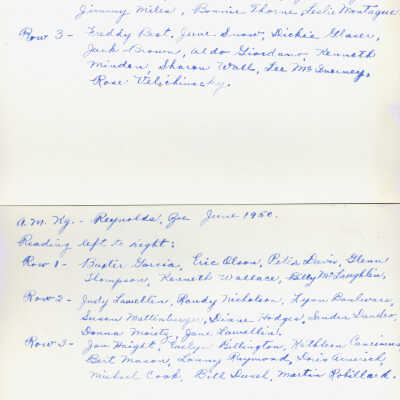 Jimmy Miles, Bonnie Thorne, Leslie Montague
Row 3 - Freddy Best, June Snow, Dickie Glaser,
Jack Brown, Aldo Giordano, Kenneth
Minden, Sharon Wall, Lee McInerney,
Rose
A.M. Kg. - Reynolds, June 1950.
Reading left to right:
Row 1 - Buster Garcia, Eric Olson, Peter Lewis, Glenn
Thompson, Kenneth Wallace, Betty McLaughlin,
Row 2 - Judy Lauellin, Randy Nicholson, Lynn
Susan Mellenberger, Diane Hodges, Sandra
Donna Moisty, Jane Lauellin.
Row 3 - Jan Haight, Evelyn Billington, Kathleen
Bert Mason, Lanny Raymond, Doris
Michael Cook, Bill Dusel, Martin Robillard.